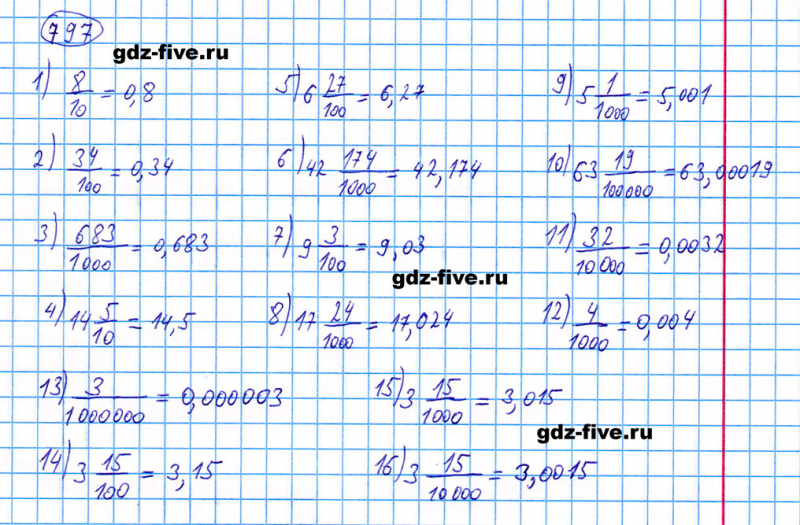 797
gdz-five.ru
1) 8/10 = 0,8
5) 6 27/100 = 6,27
9) 5 1/1000 = 5,001
2) 34/100 = 0,34
6) 42 174/1000 = 42,174
10) 63 19/100000 = 63,00019
3) 683/1000 = 0,683
7) 9 3/100 = 9,03
11) 32/10000 = 0,0032
gdz-five.ru
4) 14 5/10 = 14,5
8) 17 24/1000 = 17,024
12) 4/1000 = 0,004
13) 3/1000000 = 0,000003
15) 3 15/1000 = 3,015
gdz-five.ru
14) 3 15/100 = 3,15
16) 3 15/10000 = 3,0015